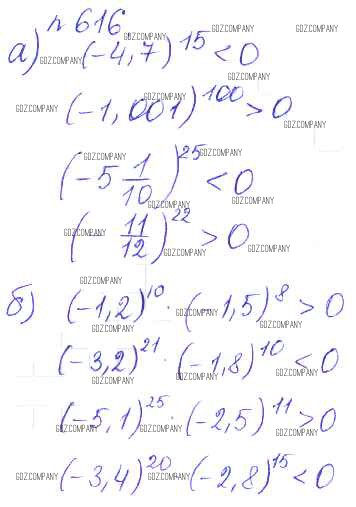 n 616
GDZCOMPANY GDZCOMPANY GDZCOMPANY
а) (-4,7)^15 < 0
GDZCOMPANY GDZCOMPANY
GDZCOMPANY GDZCOMPANY
(-1,001)^100 > 0
GDZCOMPANY
GDZCOMPANY GDZCOMPANY
(-5 1/10)^25 < 0
GDZCOMPANY GDZCOMPANY
(- 11/12)^22 > 0
GDZCOMPANY GDZCOMPANY GDZCOMPANY
GDZCOMPANY
б) (-1,2)^10 · (-1,5)^8 > 0
GDZCOMPANY
GDZCOMPANY GDZCOMPANY
(-3,2)^21 · (-1,8)^10 < 0
GDZCOMPANY GDZCOMPANY GDZCOMPANY
(-5,1)^25 · (-2,5)^11 > 0
GDZCOMPANY GDZCOMPANY GDZCOMPANY
(-3,4)^20 (-2,8)^15 < 0
GDZCOMPANY GDZCOMPANY GDZCOMPANY